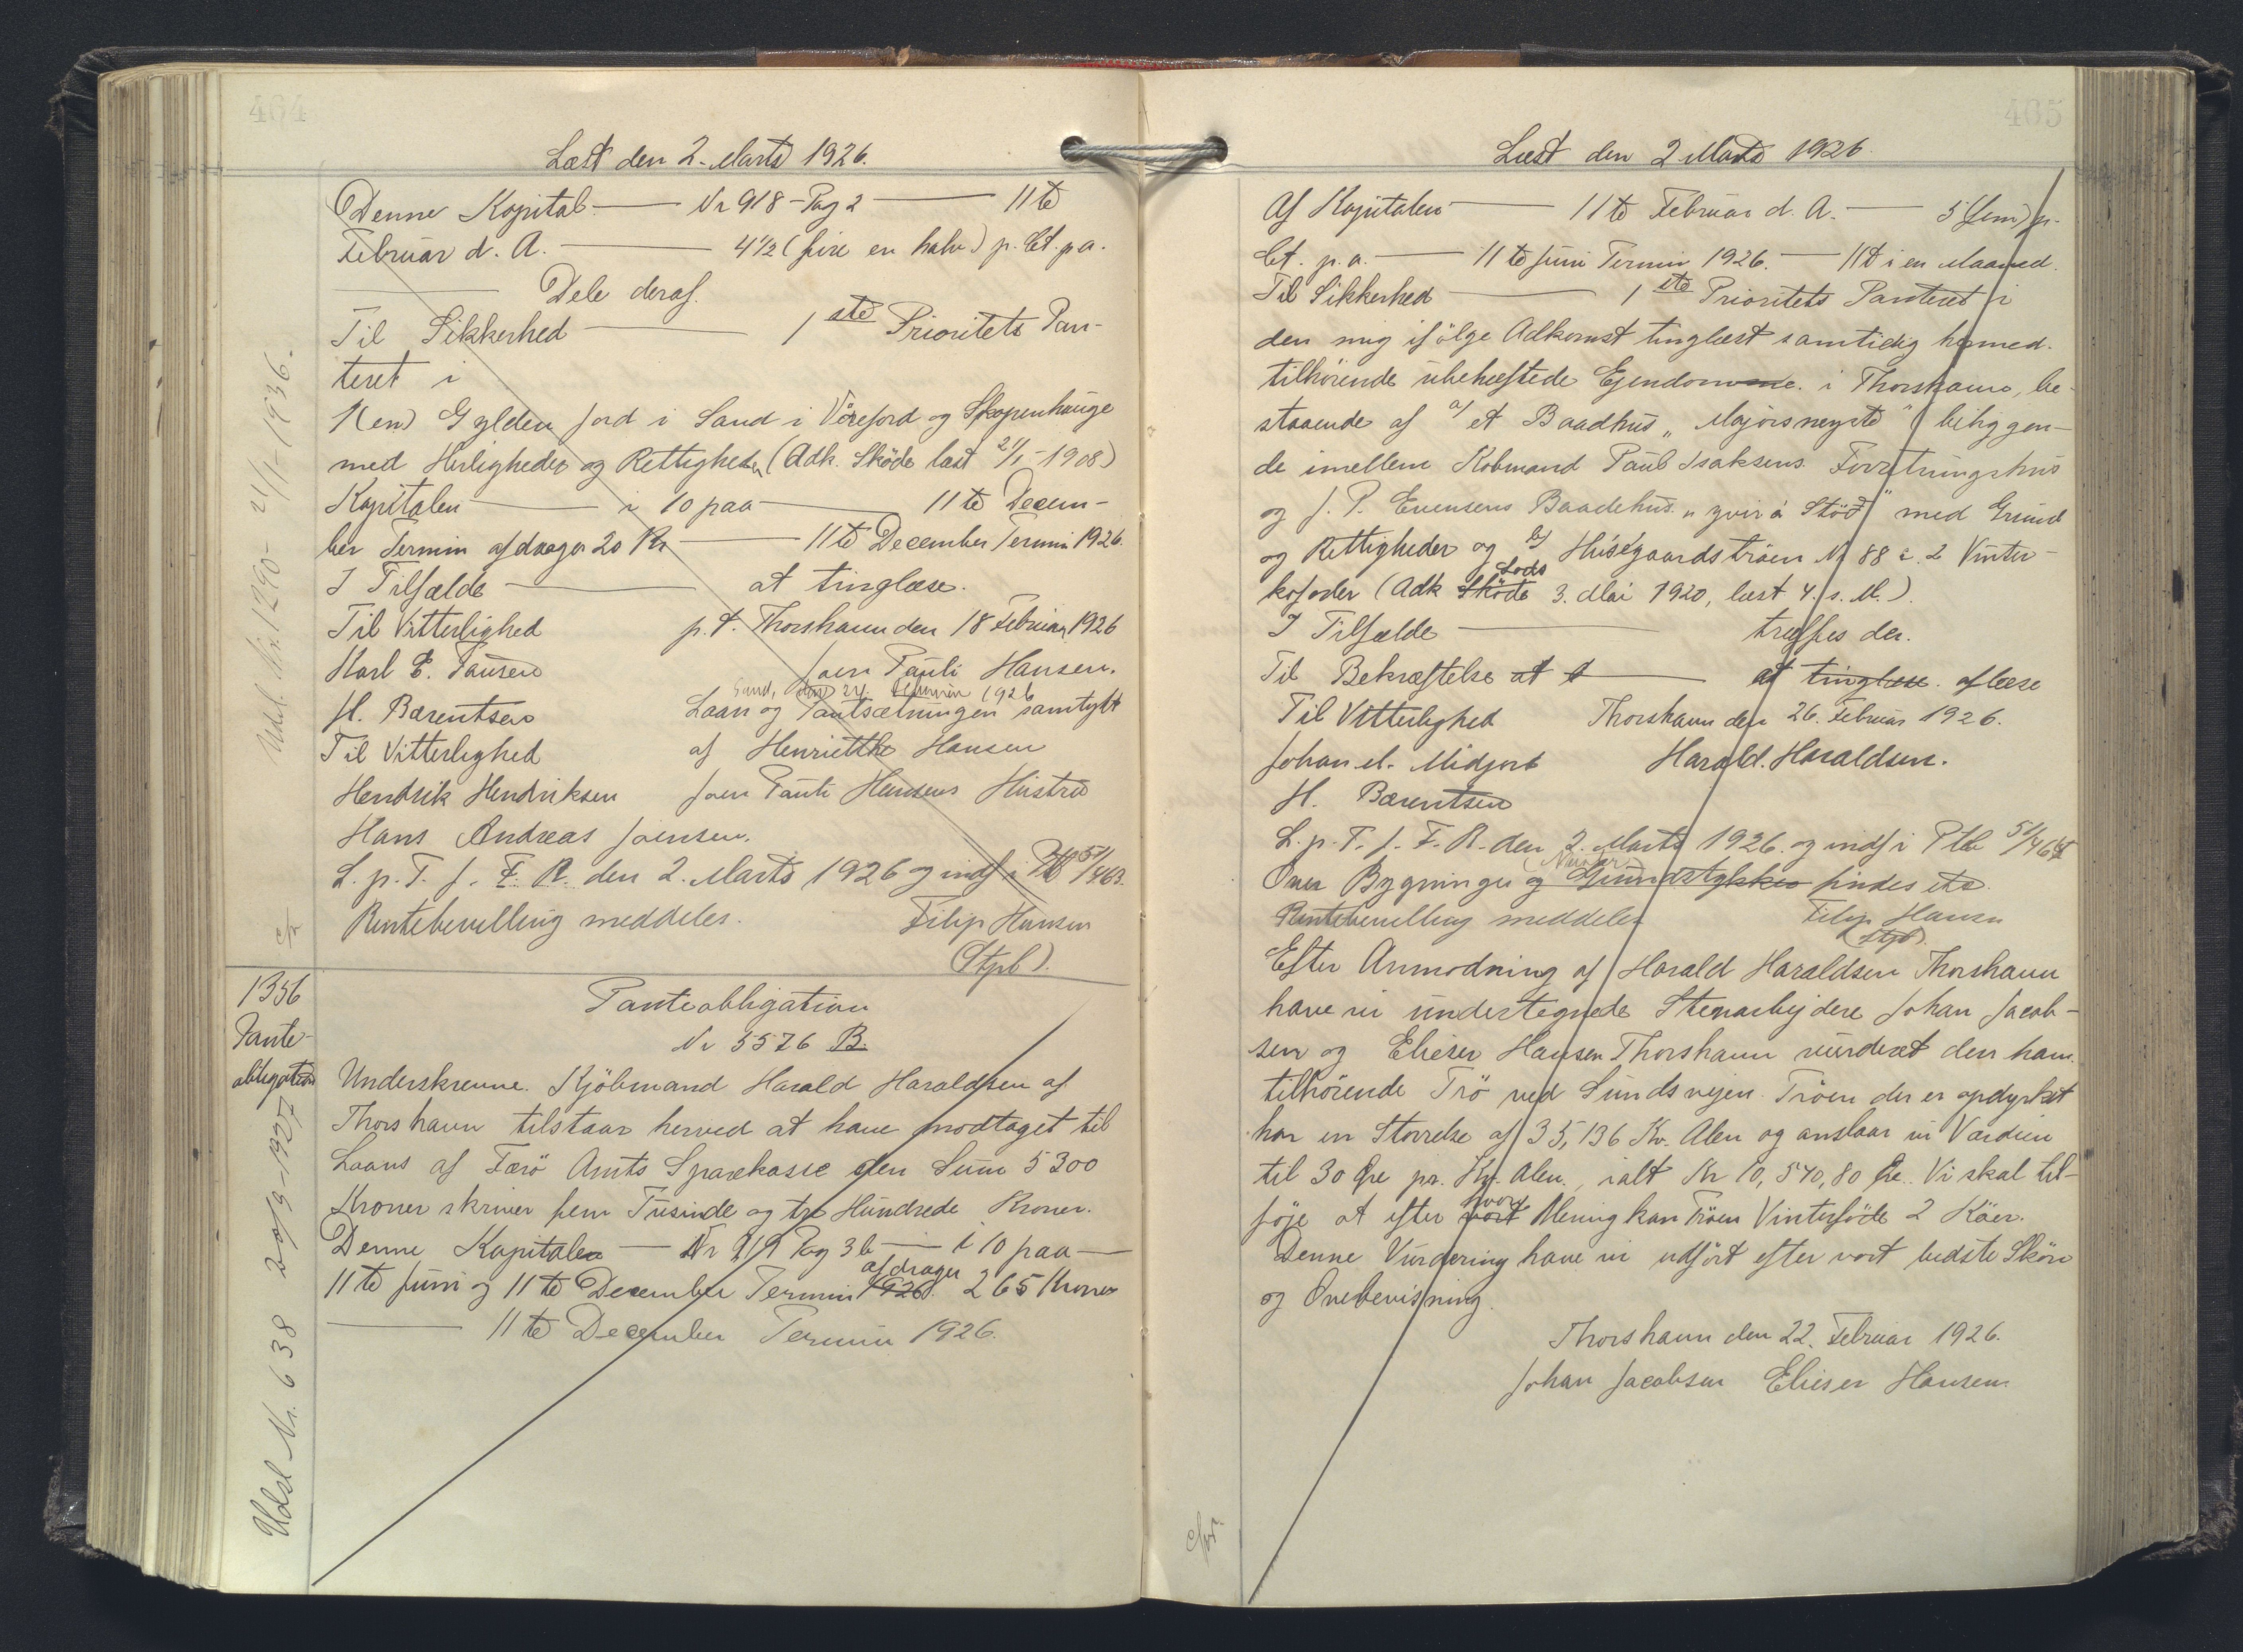 464
Læst den 2. Marts 1926.
Denne Kapital — Nr 918 - Pag 2 — 11te
Februar d. A. — 4 1/2 (fire en halv) p. Ct. p. a.
— Dele deraf.
Til Sikkerhed — 1ste Prioritets Pan-
teret i
1 (en) Gylden Jord i Sand i Vöreford og Skopenhauge
med Herligheder og Rettigheder (Adk. Sköde læst 21/1 - 1908)
Kapitalen — i 10 paa — 11te Decem-
ber Termin afdrager 20 Kr — 11te December Termin 1926.
I Tilfælde — at tinglæse.
Til Vitterlighed p. t. Thorshavn den 18 Februar 1926
Karl E. Joen Pauli Hansen.
Sand, den 24. Februar 1926
H. Bærentsen Laan og Pantsætningen samtykt
Til Vitterlighed af Henriette Hansen
Hendrik Hendriksen Joen Pauli Hansens Hustru
Hans Andreas Joensen.
L. p. T. f. F. R. den 2. Marts 1926 og indf i Ptb 51/463.
Rentebevilling meddeles. Filip Hansen
(Stpl).
Udsl. Nr. 1290 - 21/1 - 1936.
1356
Pante-
obligation
Udsl Nr. 638 20/9 - 1927
Panteobligation
Nr 5576 B.
Underskrevne Kjöbmand Harald Haraldsen af
Thorshavn tilstaar herved at have modtaget til
Laans af Færö Amts Sparekasse den Sum 5300
Kroner skriver fem Tusinde og tre Hundrede Kroner.
Denne Kapitalen — Nr 919 Pag 3b — i 10 paa —
11te Juni og 11te December Termin 1926. afdrager 265 Kroner
— 11te December Termin 1926.
465
Læst den 2 Marts 1926.
Af Kapitalen — 11te Februar d. A. — 5 (fem) p.
Ct. p. a. — 11te Juni Termin 1926. — 11te i en Maaned.
Til Sikkerhed — 1ste Prioritets Panteret i
den mig ifölge Adkomst tinglæst samtidig hermed
tilhörende ubehæftede Ejendomme i Thorshavn, be-
staaende af a/ et Baadhus „Majorsneyste" beliggen-
de imellem Kobmand Paul Isaksens Forretningshus
og J. P. Evensens Baadehus „yvir á Stöd" med Grund
og Rettigheder og b/ Húsegaardströen Nr 88 à 2 Vinter-
kofoder (Adk Sköde Lods 3. Mai 1920, læst 4. s. M.).
I Tilfælde — træffes der.
Til Bekræftelse at t — at tinglæse. aflæse
Til Vitterlighed Thorshavn den 26. Februar 1926.
Johan M. Midjord Harald Haraldsen.
H. Bærentsen
L. p. T. f. F. R. den 2. Marts 1926 og indf i Ptb 51/464
Over Bygninger og Grundstykker findes etc.
Rentebevilling meddeles Filip Hansen
(Stpl).
Efter Anmodning af Harald Haraldsen Thorshavn
have vi undertegnede Stenarbejdere Johan Jacob-
sen og Elieser Hansen Thorshavn vurderet den ham
tilhörende Trö ved Sundsvejen. Tröen der er opdyrket
har en Storrelse af 35,136 Kv. Alen og anslaar vi Værdien
til 30 Öre pr. Kv. Alen, ialt Kr 10,540,80 Öre. Vi skal til-
föje at efter vort Mening kan Tröen Vinterföde 2 Köer.
Denne Vurdering have vi udfört efter vort bedste Skön
og Overbevisning.
Thorshavn den 22. Februar 1926.
Johan Jacobsen Elieser Hansen.